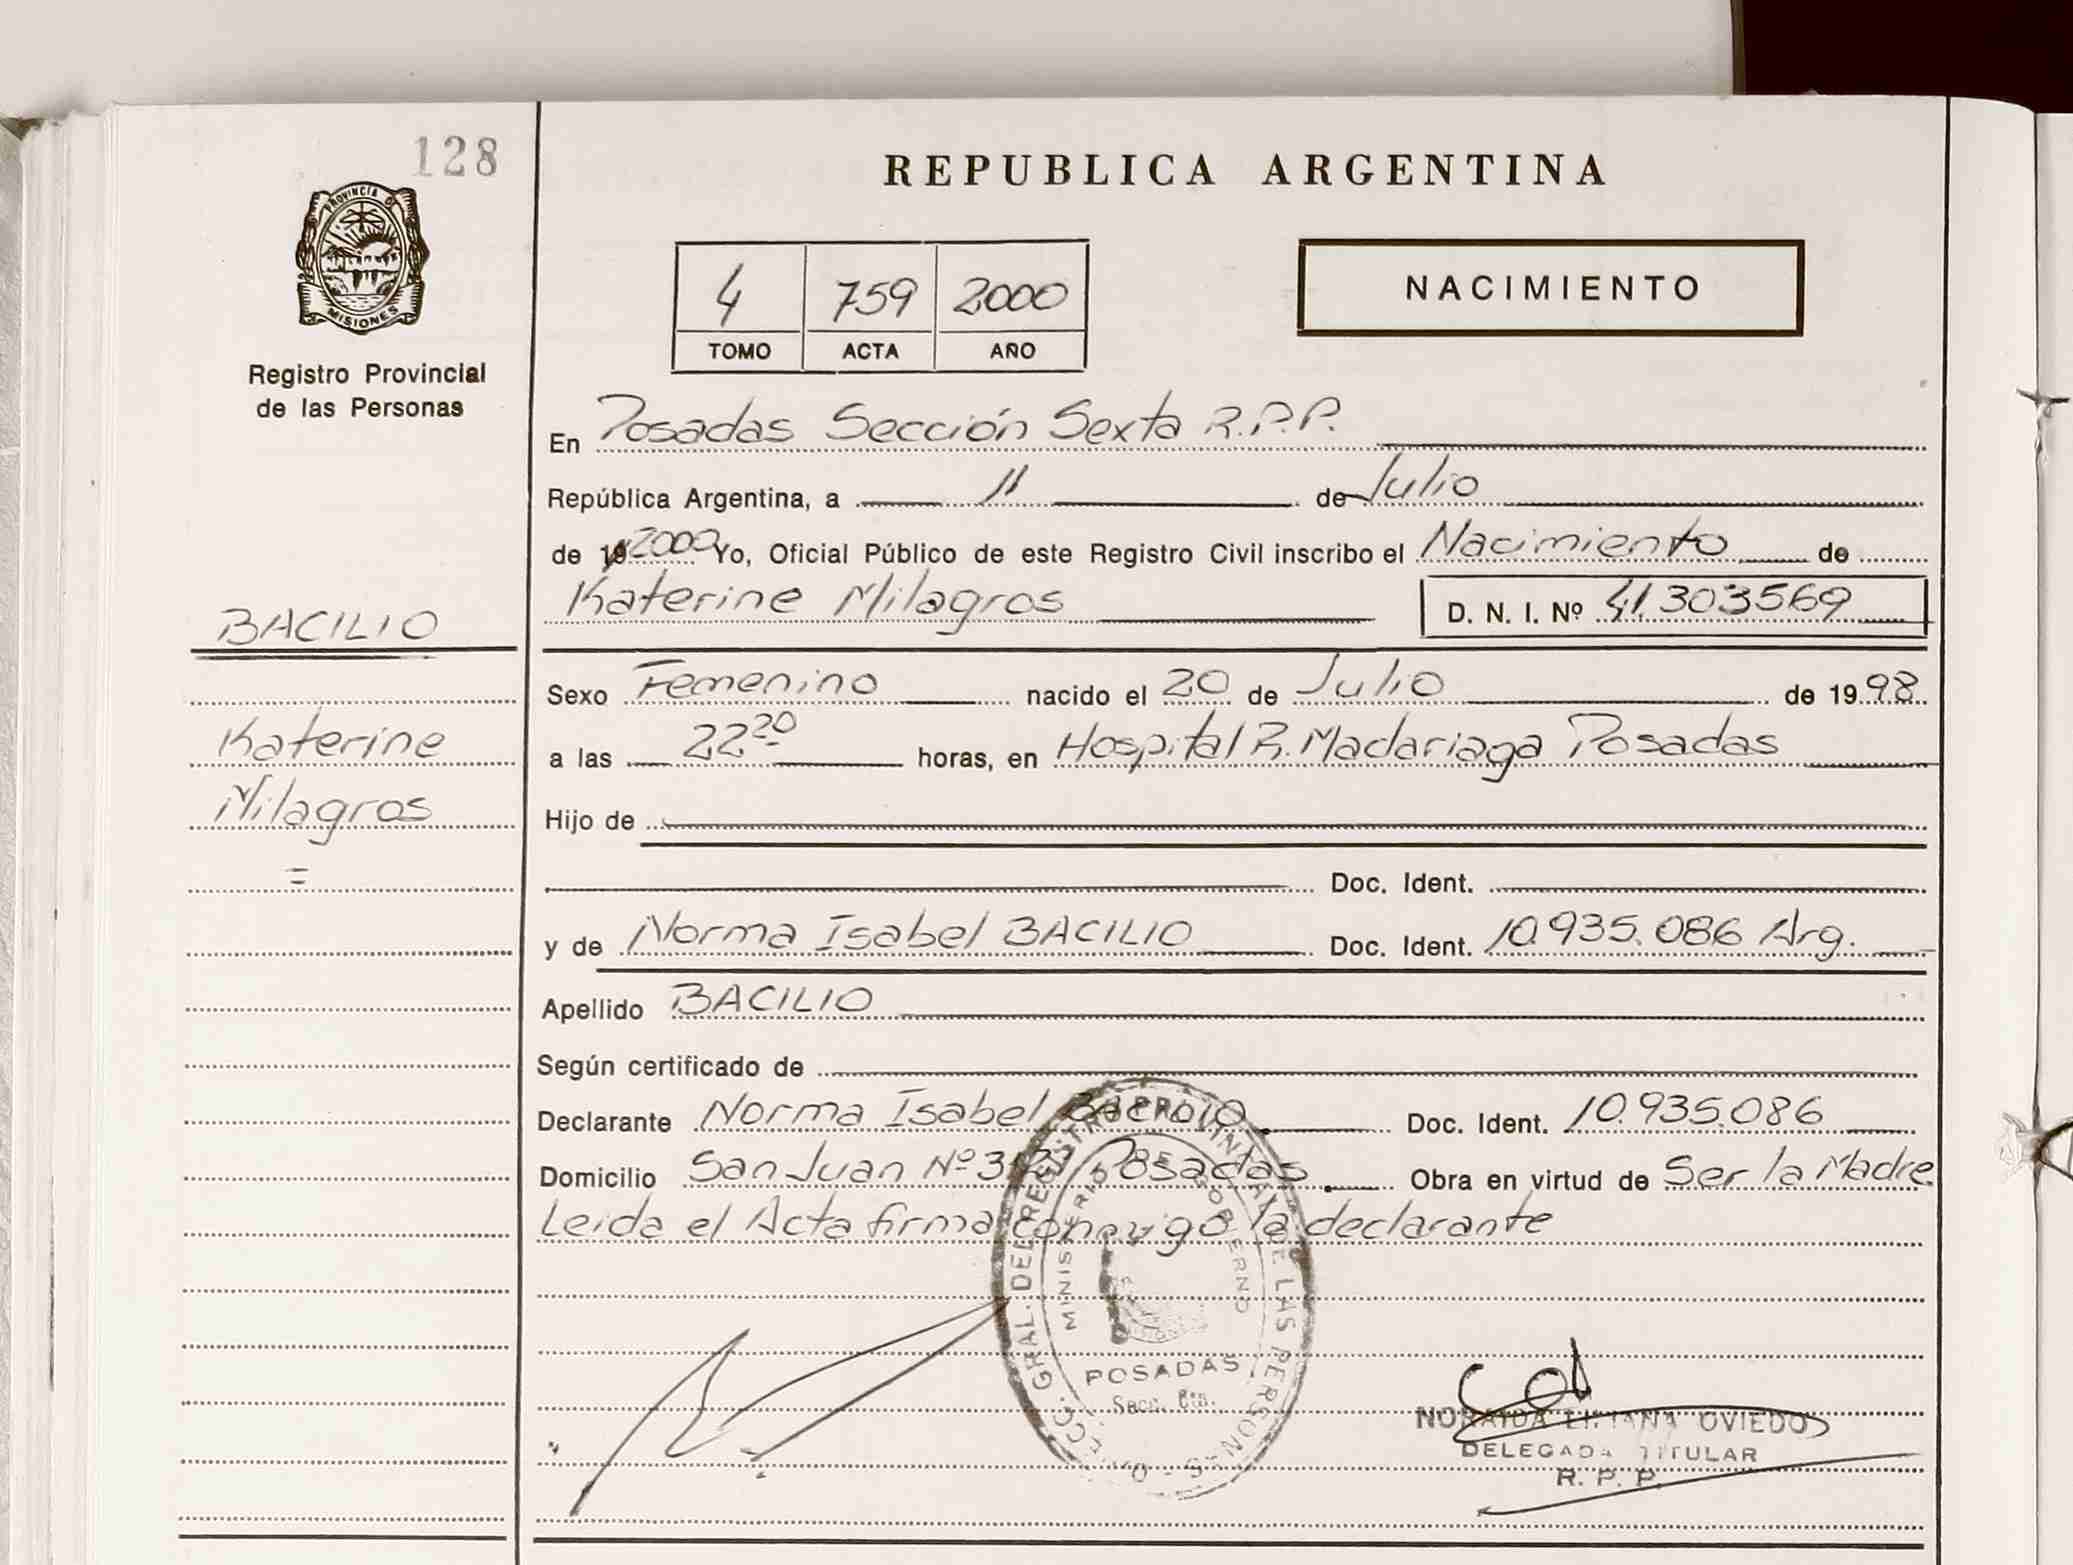 128
REPUBLICA ARGENTINA
PROVINCIA DE
MISIONES
4 759 2000
TOMO ACTA AÑO
NACIMIENTO
Registro Provincial
de las Personas
En Posadas Sección Sexta R.P.P.
República Argentina, a 11 de Julio
de 19 2000 Yo, Oficial Público de este Registro Civil inscribo el Nacimiento de
Katerine Milagros D. N. I. Nº 41.303569
BACILIO
Sexo Femenino nacido el 20 de Julio de 1998
Katerine
a las 22 20 horas, en Hospital R. Madariaga Posadas
Milagros
Hijo de
=
Doc. Ident.
y de Norma Isabel BACILIO Doc. Ident. 10.935.086 Arg.
Apellido BACILIO
Según certificado de
Declarante Norma Isabel Doc. Ident. 10.935.086
Domicilio San Juan Nº Posadas Obra en virtud de Ser la Madre.
Leida el Acta firma conmigo la declarante
GRAL. DEL REGISTRO PROVINCIAL DE LAS PERSONAS
MINISTERIO DE GOBIERNO
MISIONES
POSADAS
Secc. 6ta.
NORAIDA LILIANA OVIEDO
DELEGADA TITULAR
R. P. P.